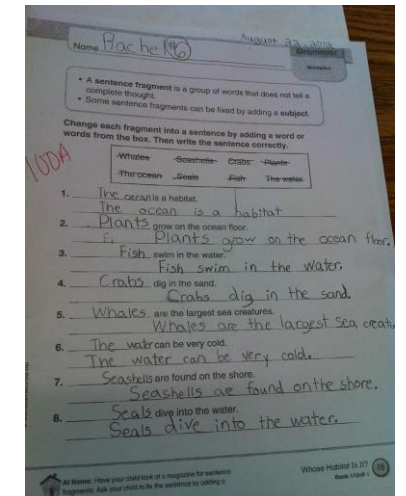 August 22, 2012
Name Rachel #6
Grammar
• A sentence fragment is a group of words that does not tell a
complete thought.
• Some sentence fragments can be fixed by adding a subject.
Change each fragment into a sentence by adding a word or
words from the box. Then write the sentence correctly.
100A
Whales Seashells Crabs Plants
The ocean Seals Fish The water
1. The ocean is a habitat.
The ocean is a habitat
2. Plants grow on the ocean floor.
Plants grow on the ocean floor.
3. Fish swim in the water.
Fish swim in the water.
4. Crabs dig in the sand.
Crabs dig in the sand.
5. Whales are the largest sea creatures.
Whales are the largest sea creatu
6. The water can be very cold.
The water can be very cold.
7. Seashells are found on the shore.
Seashells are found on the shore.
8. Seals dive into the water.
Seals dive into the water.
At Home: Have your child look at a magazine for sentence
fragments. Ask your child to fix the sentence by adding a
Whose Habitat Is It?
Book 1/Unit 1
15